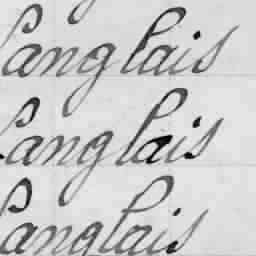 Langlais
Langlais
Langlais